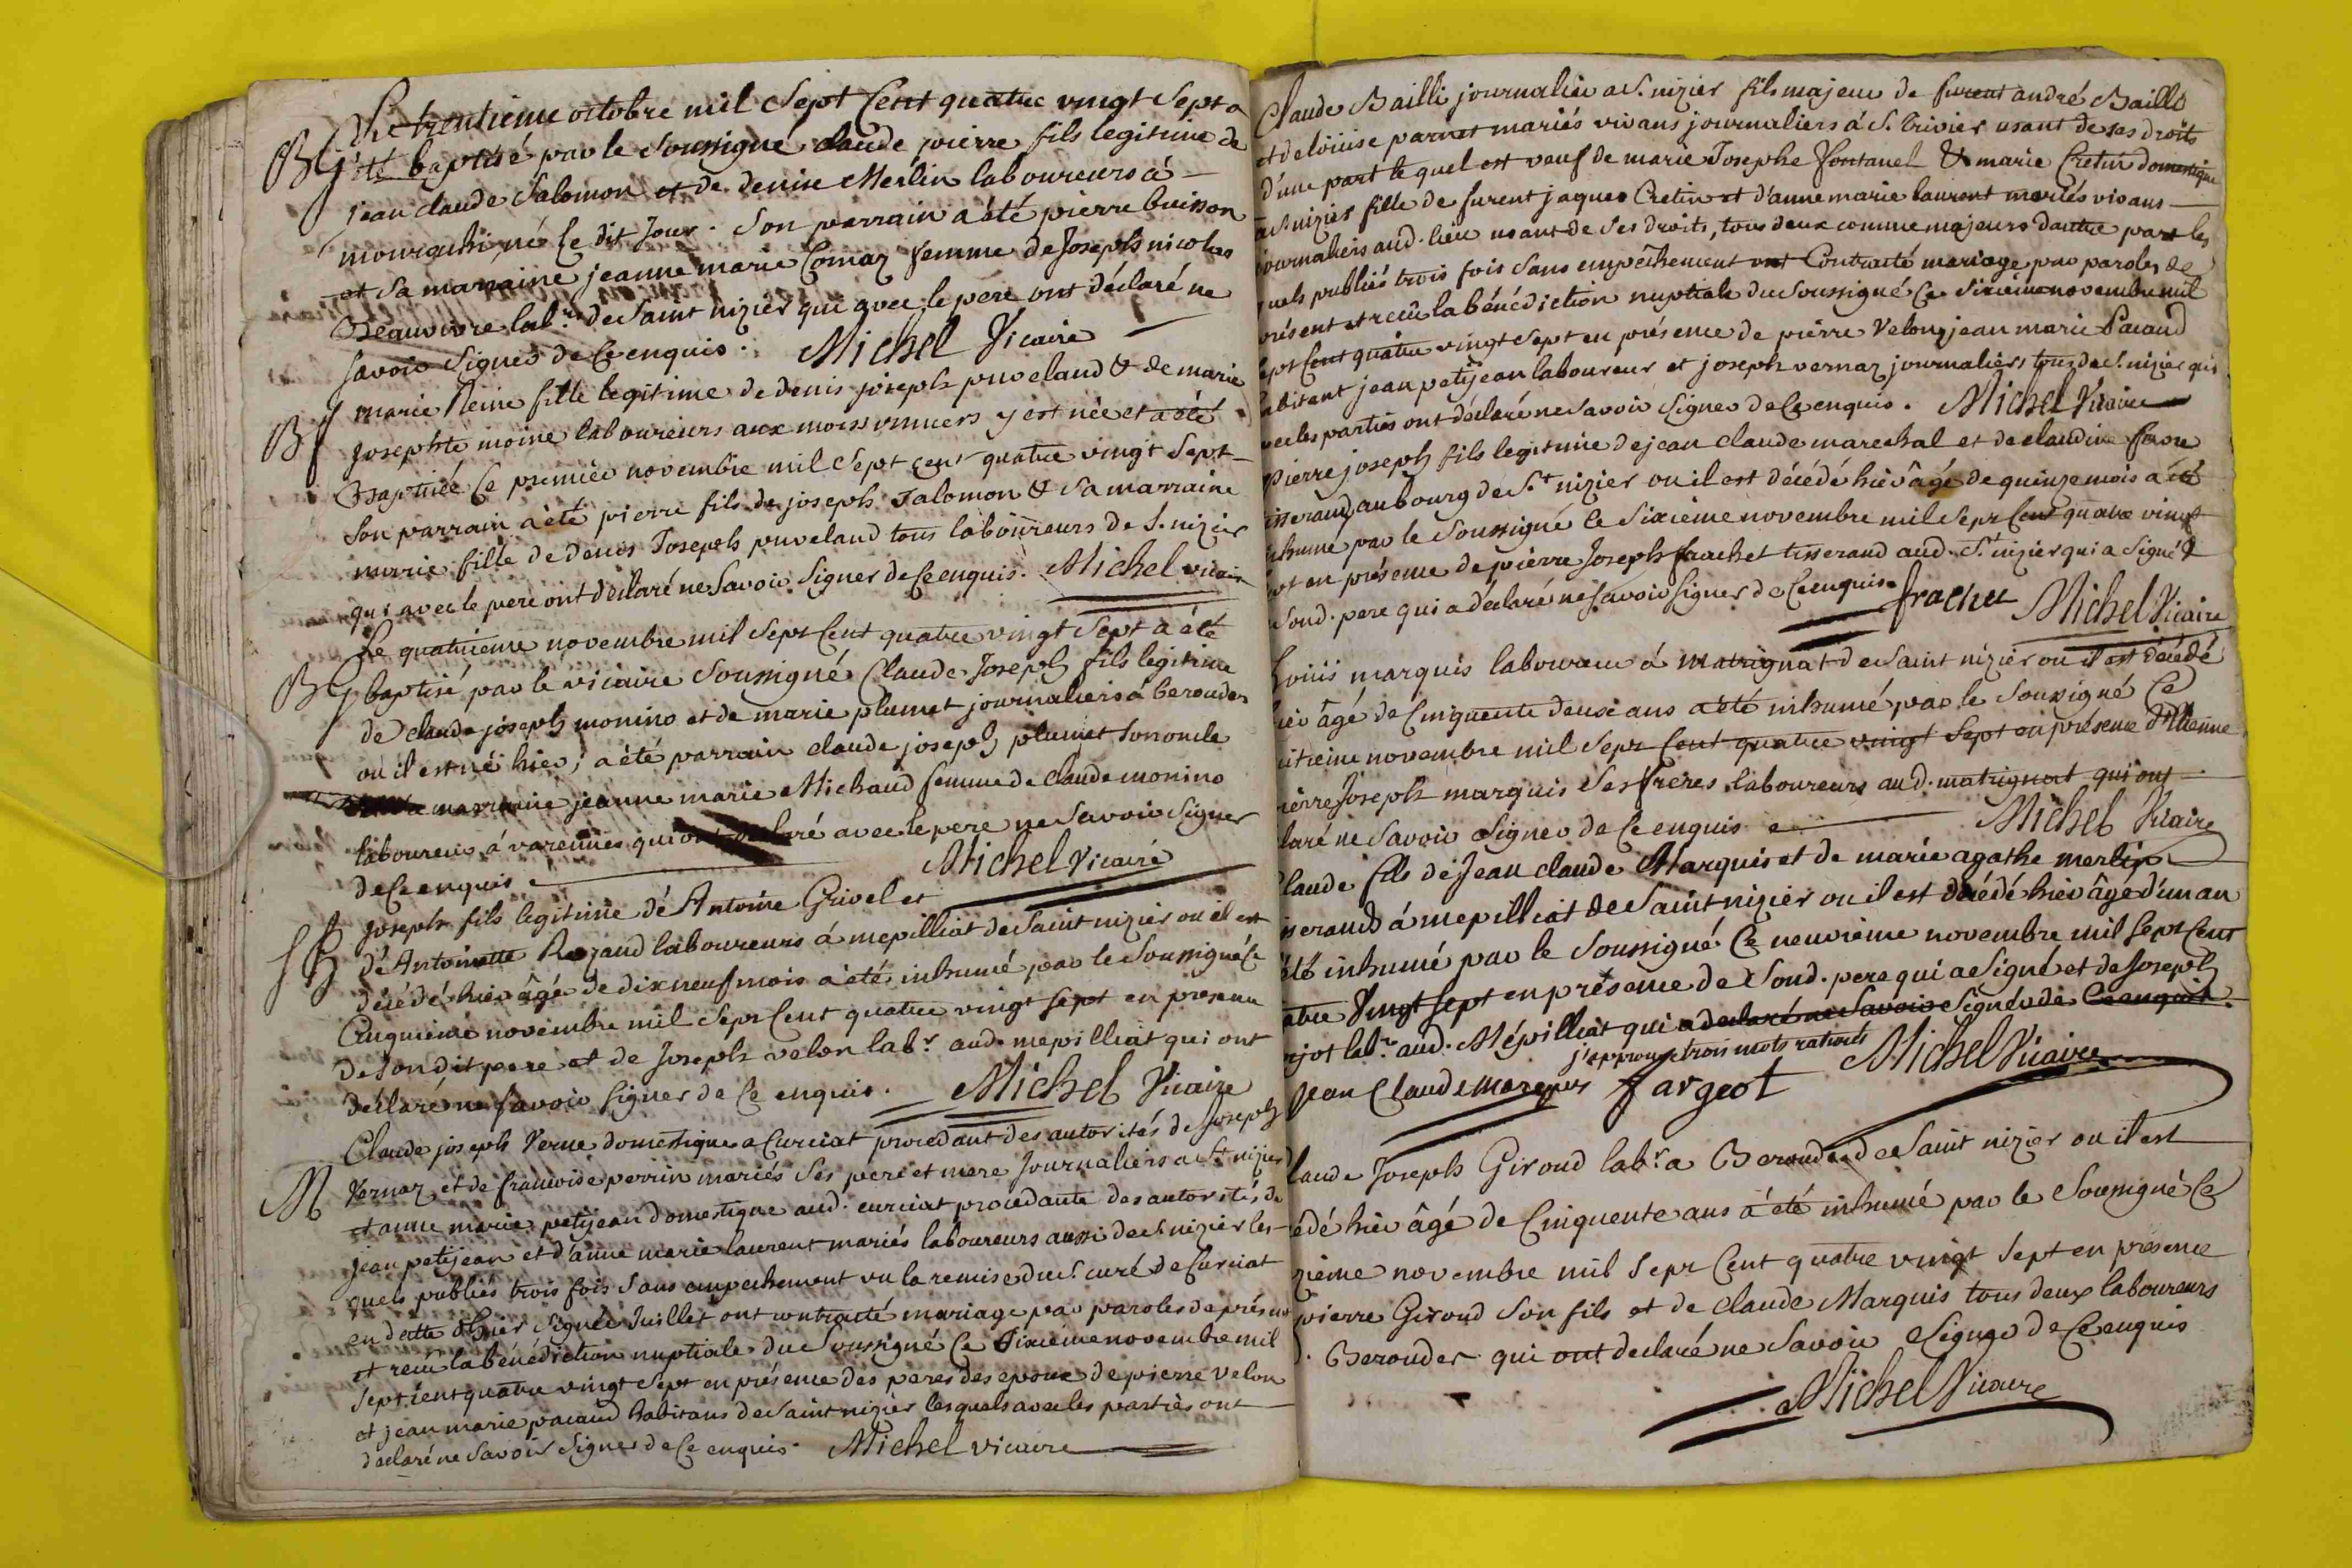 Le trentieme octobre mil Sept Cent quatre vingt Sept a
BG été baptisé par le Soussigné claude pierre fils legitime de
jean claude Salomon et de denise Merlin laboureurs à
né le dit Jour. Son parrain a été pierre buisson
et Sa marraine jeanne marie Comaz femme de Joseph nicolas
Beauvoire lab.rs de Saint nizier qui avec le pere ont déclaré ne
Savoir Signer de Ce enquis. Michel Vicaire
marie Reine fille legitime de denis joseph puveland & de marie
Bf Josephte moine laboureurs aux y est née et a été
Baptisée Ce premier novembre mil Sept cent quatre vingt Sept
Son parrain a été pierre fils de joseph Salomon & Sa marraine
marie fille de denis Joseph puveland tous laboureurs de S. nizier
qui avec le pere ont déclaré ne Savoir Signer de Ce enquis. Michel vicaire
Le quatrieme novembre mil Sept Cent quatre vingt Sept a été
BG baptisé par le vicaire Soussigné Claude Joseph fils legitime
de claude joseph monino et de marie plumet journaliers à beroudes
ou il est né hier; a été parrain claude joseph plumet Son oncle
marraine jeanne marie Michaud femme de claude monino
laboureur à varennes qui ont declaré avec le pere ne Savoir Signer
de Ce enquis Michel Vicaire
Joseph fils legitime de Antoine Grivel et
SG de Antoinette laboureurs à mepilliat de Saint nizier ou il est
décédé hier âgé de dix neuf mois a été inhumé par le Soussigné Ce
Cinquieme novembre mil Sept Cent quatre vingt Sept en presence
de Son dit pere et de Joseph velon lab.r aud. mepilliat qui ont
declaré ne Savoir Signer de Ce enquis. Michel Vicaire
Claude joseph Verne domestique a Curciat procedant des autorités de Joseph
M Vernaz et de francoise perrin mariés Ses pere et mere Journaliers a S.t nizier
et anne marie petijean domestique aud. curciat procedante des autorités de
Jean petijean et d'anne marie laurent mariés laboureurs aussi de S. nizier les
quels publiés trois fois Sans empechement vu la remise du S. curé de Curciat
en datte d'hier Signée Juillet ont contracté mariage par paroles de présent
et recu la bénédiction nuptiale du Soussigné Ce Sixieme novembre mil
Sept cent quatre vingt Sept en présence des peres des epoux de pierre velon
et jean marie pacaud habitans de Saint nizier lesquels avec les parties ont
declaré ne Savoir Signer de Ce enquis. Michel vicaire
Claude Bailli journalier a S. nizier fils majeur de furent andré Bailli
et de loüise parnet mariés vivans journaliers à S. Trivier usant de ses droits
d'une part le quel est veuf de marie Josephe fontanel & marie Cretin domestique
a S. nizier fille de furent jaques Cretin et d'anne marie laurent mariés vivans
journaliers aud. lieu usant de Ses droits, tous deux comme majeurs dautre part les
quels publiés trois fois Sans empechement ont Contracté mariage par paroles de
présent et recu la bénédiction nuptiale du Soussigné Ce Sixieme novembre mil
Sept Cent quatre vingt Sept en présence de pierre Velon, jean marie Pacaud
abitant jean petijean laboureur et joseph vernaz journaliers tous de S. nizier qui
avec les parties ont déclaré ne Savoir Signer de Ce enquis. Michel Vicaire
Pierre joseph fils legitime de jean claude marechal et de claudine favre
isserands au bourg de S.t nizier ou il est décédé hier âgé de quinze mois a été
inhumé par le Soussigné le Sixieme novembre mil Sept Cent quatre vingt
Sept en présence de pierre Joseph frachet tisserand aud. S.t nizier qui a Signé &
Sond. pere qui a déclaré ne Savoir Signer de Ce enquis. frachet Michel Vicaire
Loüis marquis laboureur à matrignat de Saint nizier ou il est décédé
hier âgé de Cinquente deux ans a été inhumé par le Soussigné Ce
uitieme novembre mil Sept Cent quatre vingt Sept en présence d'Etienne
ierre Joseph marquis Ses freres laboureurs aud. matrignat qui ont
laré ne Savoir Signer de Ce enquis Michel Vicaire
laude fils de Jean claude Marquis et de marie agathe merlin
isserands à mepilliat de Saint nizier ou il est décédé hier âgé d'un an
été inhumé par le Soussigné Ce neuvieme novembre mil Sept Cent
atre Vingt Sept en présence de Sond. pere qui a Signé et de Joseph
rjot lab.r aud. Mépilliat qui a declaré ne Savoir Signer de Ce enquis.
j'approuve trois mots raturés Michel Vicaire
Jean Claude marquis fargeot
laude Joseph Giroud lab.r a Beroudes de Saint nizier ou il est
édé hier âgé de Cinquente ans a été inhumé par le Soussigné Ce
zieme novembre mil Sept Cent quatre vingt Sept en présence
pierre Giroud Son fils et de claude Marquis tous deux laboureurs
d. Beroudes qui ont declaré ne Savoir Signer de Ce enquis
Michel Vicaire